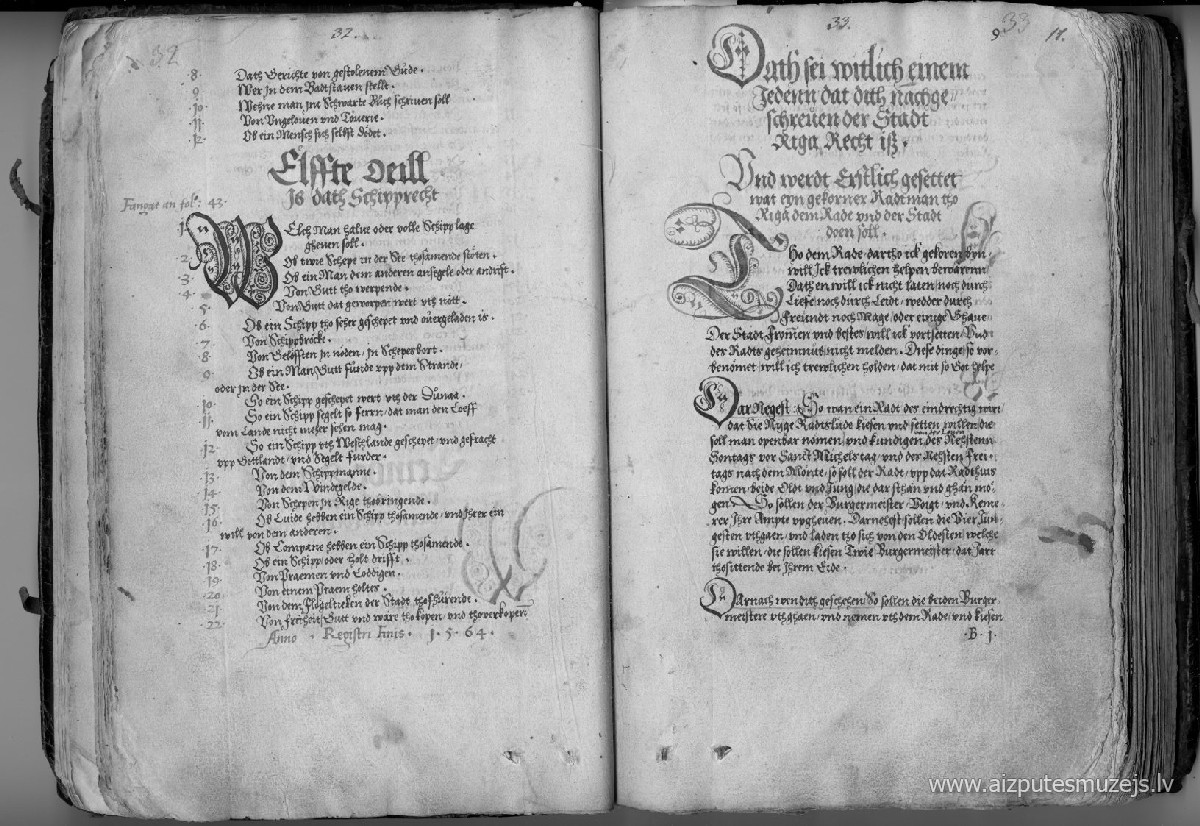 32
32.
8. Dath Gerichte von gestolenem Gude.
9. Wer in dem Badtstauen stellt.
10. Wehne man int Schwarte Buch schriuen soll
11. Von Vngelouen vnd Touerie.
12. Ob ein Mensch sich selbst dodet.
Elffte Deill
Is dath Schipprecht
Fangt an fol: 43.
1. WElch Man halue oder volle Schipp lage
gheuen soll.
2. Ob twie Schepe in der See thosamende stöten.
3. Ob ein Man dem anderen ansegele oder andrifft.
4. Von Gutt tho werpende.
5. Von Gutt dat geworpen wert vth nött.
6. Ob ein Schipp tho seher geschepet vnd auergeladen is.
7. Von Schippbröcke.
8. Von Gelöfften in nöden, in Schepesbort.
9. Ob ein Man Gutt funde vpp dem Strande,
oder in der See.
10. So ein Schipp geschepet wert vth der Dünaa.
11. So ein Schipp segelt so fern, dat man den Loeff
vom Lande nicht mher sehen mag.
12. So ein Schipp vth Westlande geschepet, vnd gefracht
vpp Gittlandt, vnd Segelt furder.
13. Von dem Schippmanne.
14. Von dem Windegelde.
15. Von Schepen in Rige thobringende.
16. Ob Luide hebben ein Schipp thosamende, vnd Iherer ein
will von dem anderen.
17. Ob Companie hebben ein Schipp thosamende.
18. Ob ein Schipp oder holt drifft.
19. Von Praemen vnd Loddigen.
20. Von einem Praem holtes.
21. Von dem Flögelteken der Stadt tho führende.
22. Von freiheit, Gutt vnd ware tho kopen, vnd tho verkopen
Anno. Registri finis. 1.5.64.
33.
33
9
11.
DAth sei witlich einem
Jedenn dat dith nachge
schreuen der Stadt
Riga Recht iß.
Vnd werdt Erstlich gesettet
wat eyn gekorner Radtman tho
Riga dem Rade vnd der Stadt
doen soll
THo dem Rade, dar tho ick gekoren byn,
will Ick trewlichen helpen bewaren
Dath en will ick nicht laten noch durch
Liefe noch durch Leidt, wedder durch
Freundt noch Mage, oder einige Ghaue
Der Stadt Fromen vnd bestes will ick vortsetten, Vnd
der Radts geheimnus nicht melden. Diese dinge so vor
benomet will ich trewlichen holden, dat mit so Got helpe
Dar Negest. So wan ein Radt des eindrechtig wirt
dat Sie Nyge Radtslüde kiesen vnd setten willen, die
soll man openbar nomen, vnd kundigen des Nehsten
Sontags vor Sanct Michels tag, vnd der Nehsten Frei-
tags nach dem Monte, so soll der Rade, vpp dat Radthus
komen, beide Oldt vnd Jung, die dar sthan vnd ghan mö-
gen. So sollen der Burgermeister, Vogt, vnd Keme
rer Ihr Ampt vpgheuen. Darnehest sollen die Vier Jun
gesten vthgaen, vnd laden tho sich von den Oldesten, welche
sie willen, die sollen kiesen Twie Burgermeister, dat Jart
tho sittende bei Ihrem Eide.
Darnach wen dith geschehen, So sollen die beiden Burger
meistere vthghaen, vnd nemen vth dem Rade, vnd kiesen
B 1.
www.aizputesmuzejs.lv